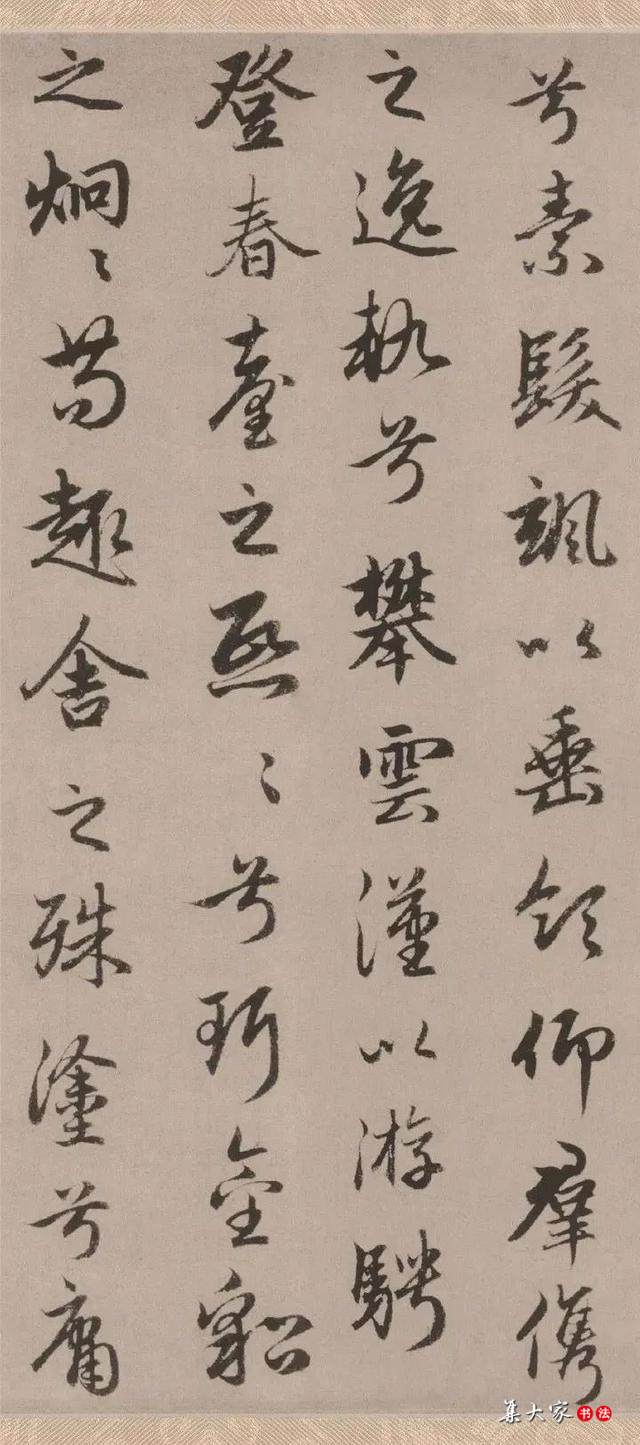 兮素髮颯以垂領仰羣儁
之逸軌兮攀雲漢以游騁
登春臺之熙々兮珥金貂
之炯々苟趣舍之殊塗兮庸
集大家书法